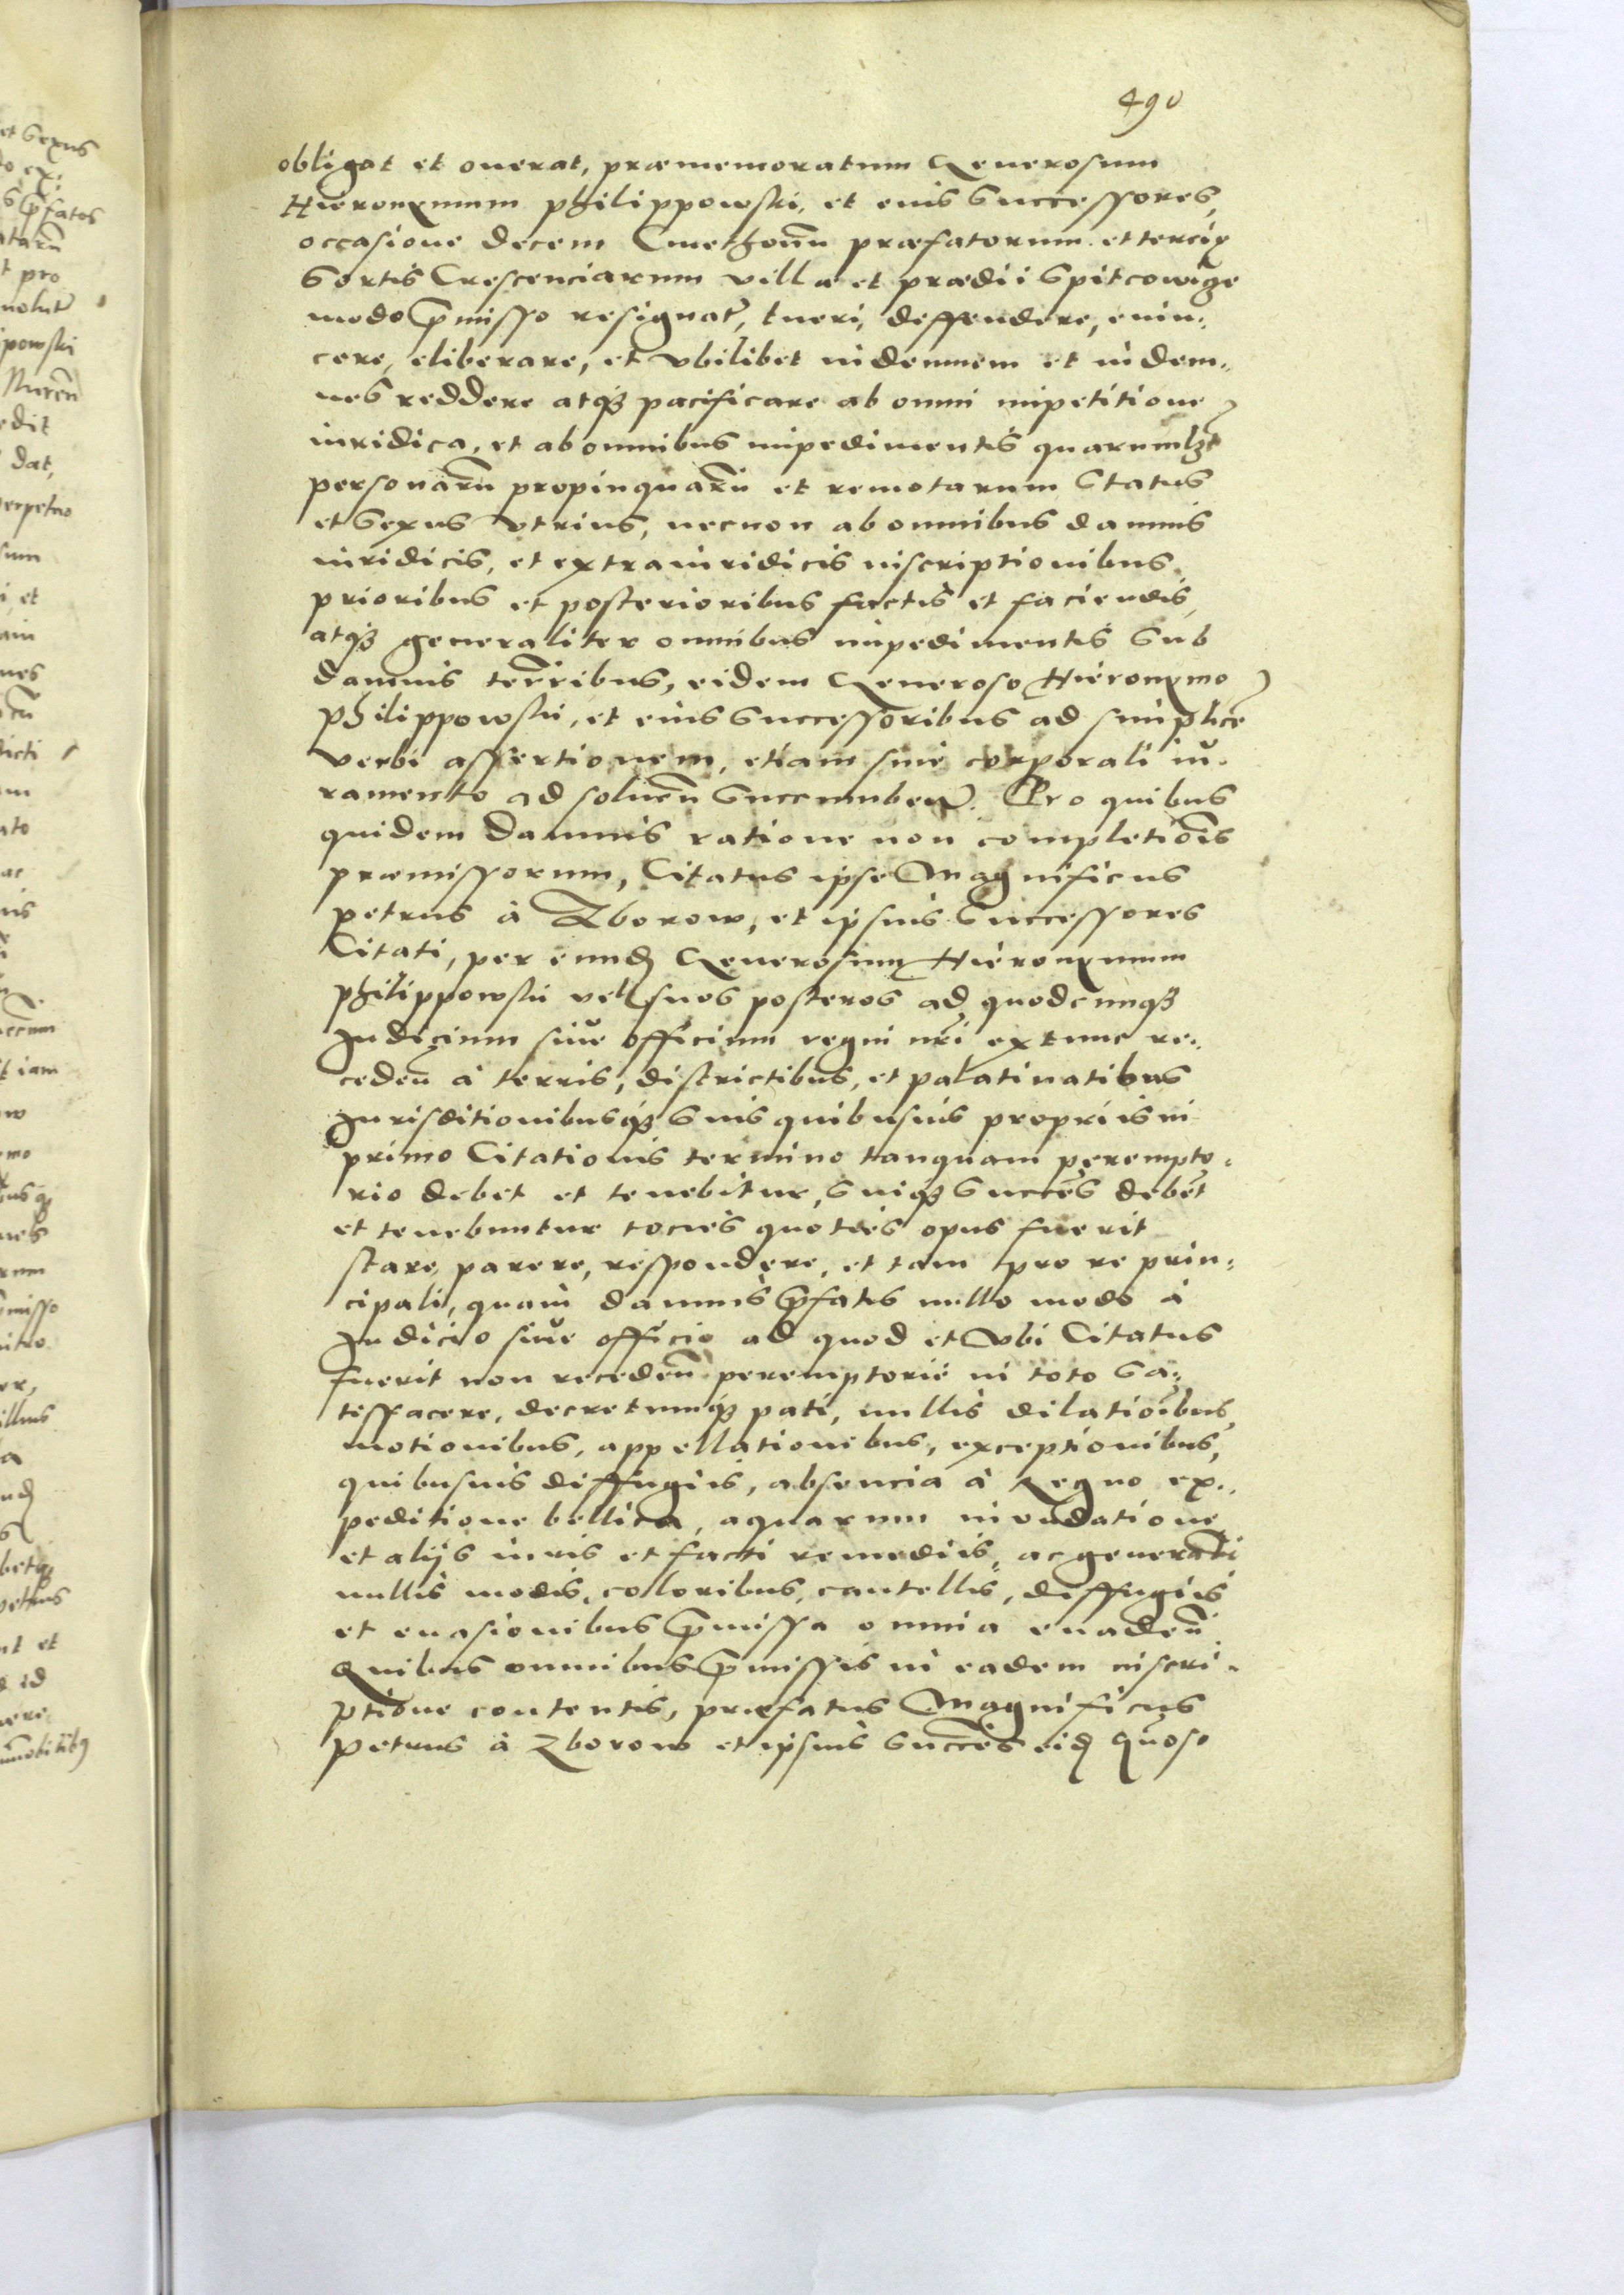 490
obligat et onerat, præmemoratum Generosum
Hieronymum Philippowski, et eius Successores,
occasione decem Cmethonũ præfatorum et terciæ
Sortis Crescenciarum villæ et prædii Spitcowicze
modo p̃misso resignat̃, tueri, deffendere, euin„
cere, eliberare, et vbilibet indemnem et indem„
nes reddere atq₃ pacificare ab omni impetitione
iuridica, et ab omnibus impedimentis quarumlzt̃
personarũ propinquarũ et remotarum Status
et Sexus vtrius, necnon ab omnibus damnis
iuridicis, et extraiuridicis inscriptionibus
prioribus et posterioribus factis et faciendis,
atq₃ generaliter omnibus impedimentis Sub
damnis terr̃ribus, eidem Generoso Hieronymo
Philippowski, et eius Successoribus ad simplicẽ
verbi assertionem, etiam sine corporali iu„
ramento ad soluen̄ Succumben̄. Pro quibus
quidem damnis ratione non completiõis
præmissorum, Citatus ipse Magnificus
Petrus à Zborow, et ipsius Successores
Citati, per eund̃ Generosum Hieronymum
Philippowski vel suos posteros ad quodcunq₃
Judicium siue officium regni nr̃i extunc re„
ceden̄ à terris, districtibus, et palatinatibus
Jurisditionibusq₃ Suis quibusuis propriis in
primo Citationis termino tanquam perempto„
rio debet et tenebitur, Suiq₃ Succes̃ debẽt
et tenebuntur tocies quoties opus fuerit
stare, parere, respondere, et tam pro re prin„
cipali, quam damnis p̃fatis nullo modo à
Judicio siue officio ad quod et vbi Citatus
fuerit non receden̄ peremptorie in toto Sa„
tisfacere, decretumq₃ pati, nullis dilatioĩbus,
motionibus, appellationibus, exceptionibus,
quibusuis diffugiis, absencia à Regno ex„
peditione bellica, aquarum inundatione
et alijs iuris et facti remediis, ac generalr̃i
nullis modis, colloribus, cautellis, diffugiis
et euasionibus p̃missa omnia euaden̄
Quibus omnibus p̃missis in eadem inscri„
ptione contentis, præfatus Magnificus
Petrus à Zborow et ipsius Succes̃ eid̃ Gñoso